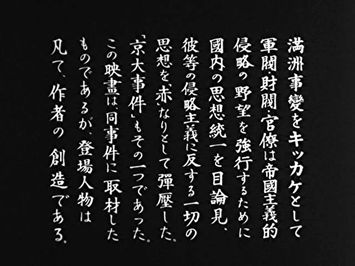 満洲事變をキッカケとして
軍閥財閥官僚は帝國主義的
侵略の野望を強行するために
國内の思想統一を目論見、
彼等の侵略主義に反する一切の
思想を赤なりとして彈壓した。
「京大事件」もその一つであった。
この映畫は、同事件に取材した
ものであるが、登場人物は
凡て、作者の創造である。